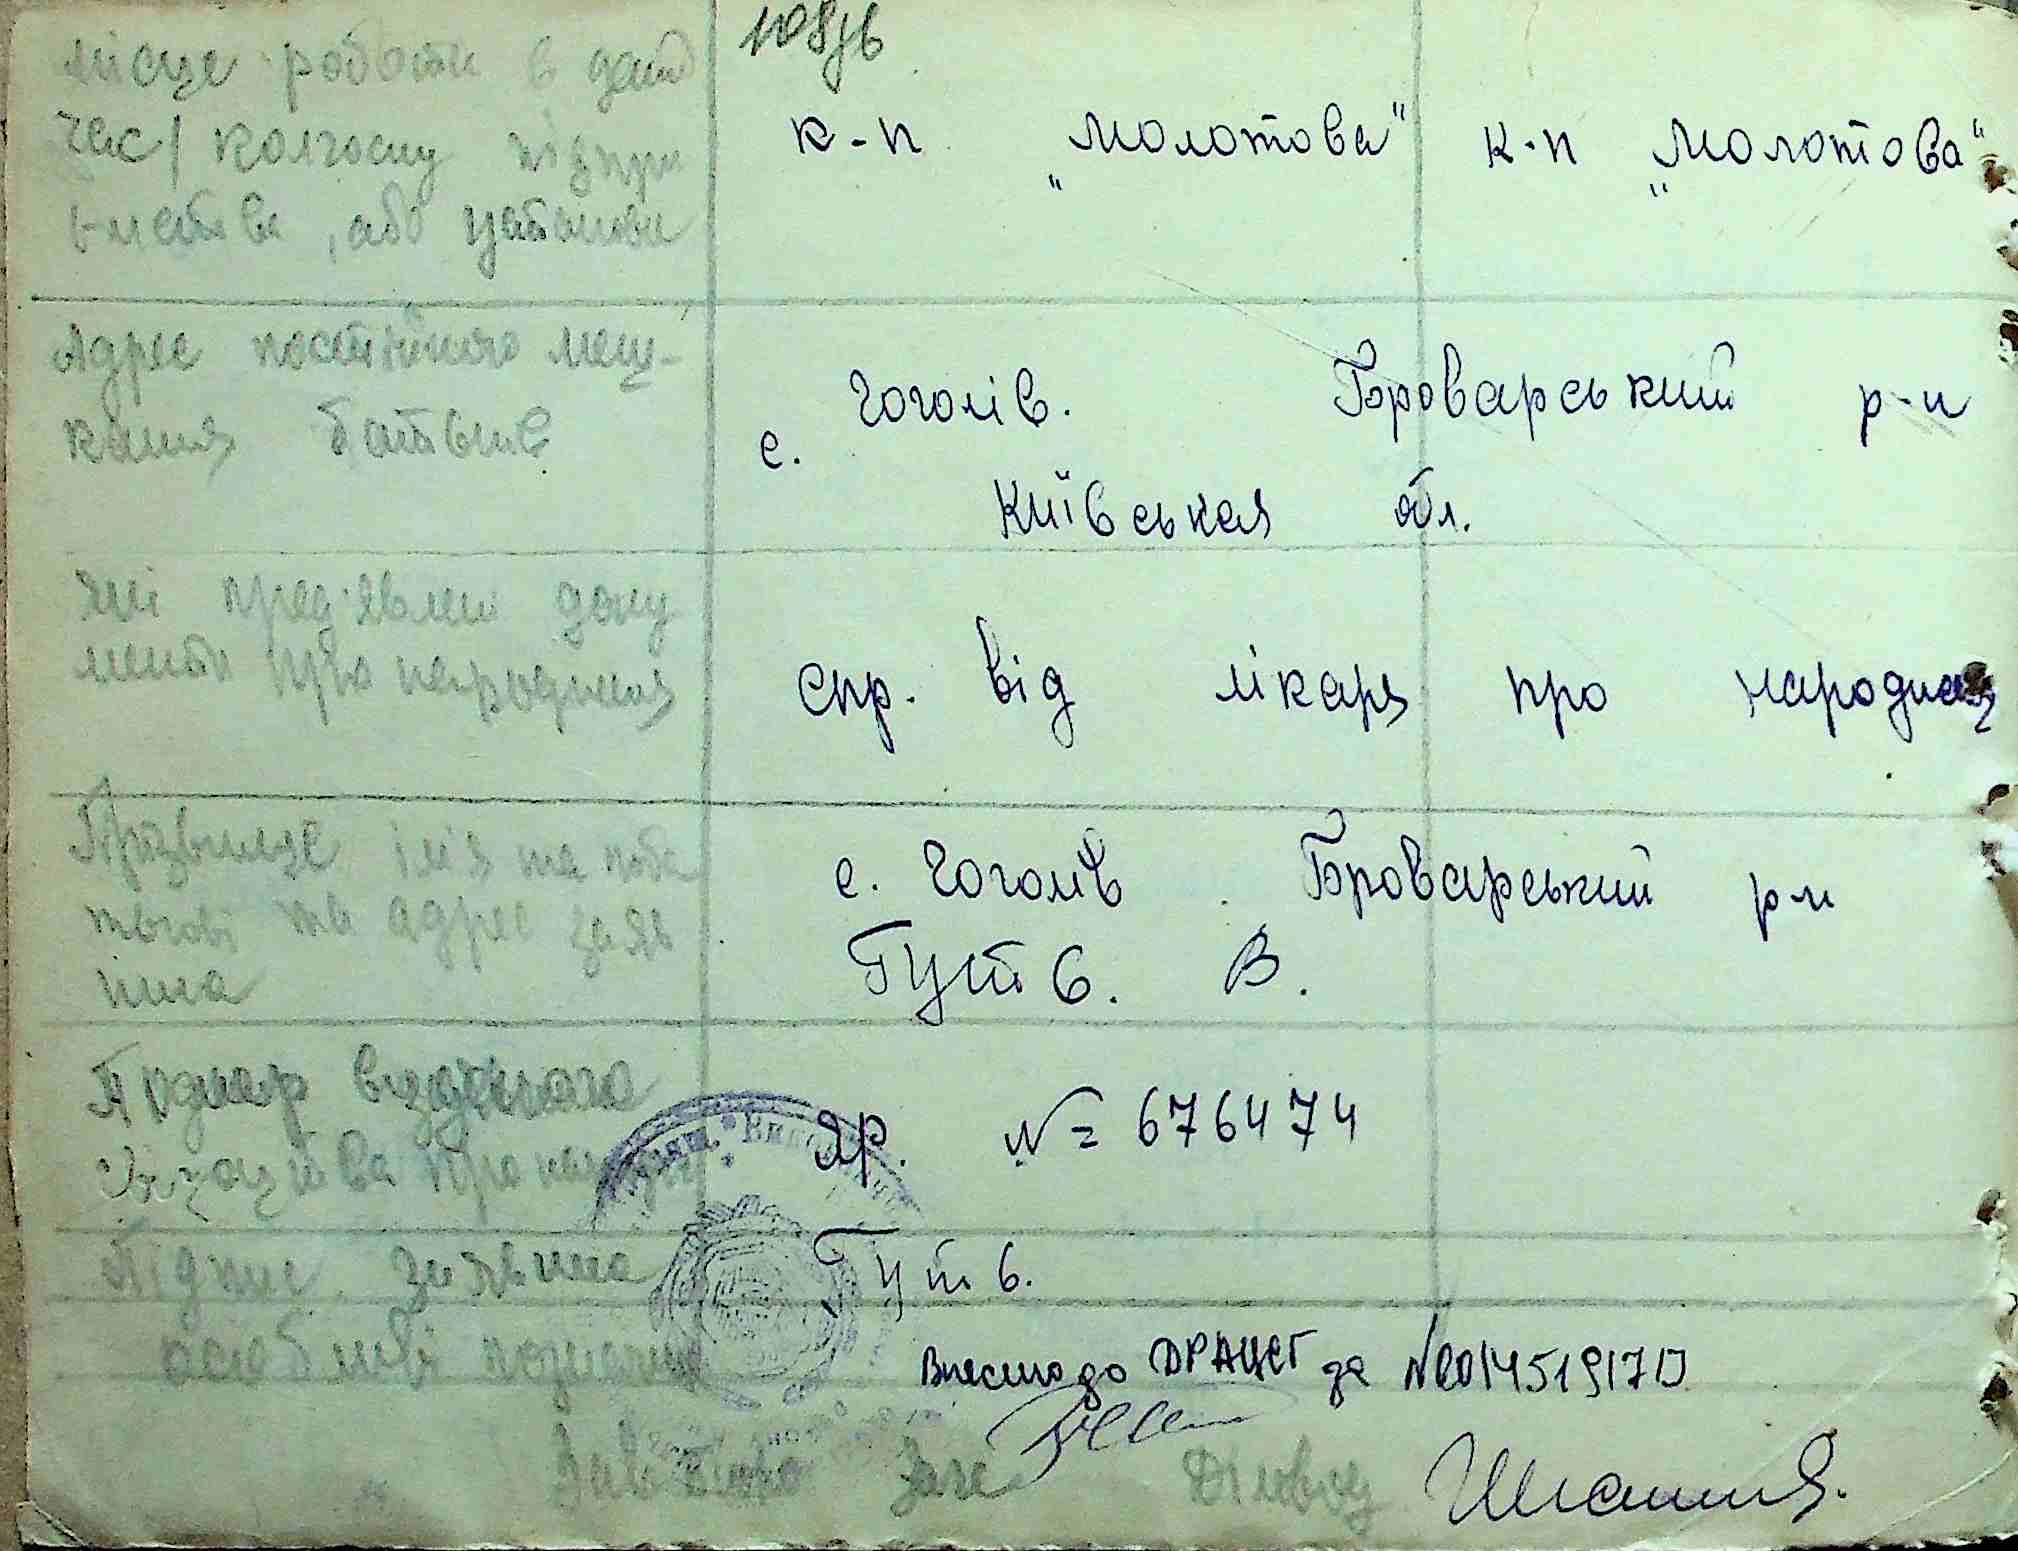 місце роботи в дан
час / колгоспу підпри
ємства, або установи
к-п „Молотова" к-п „Молотова"
Адрес постійного меш-
кання батьків
с. Гоголів. Броварський р-н
Київськая обл.
які пред'явлені доку
менти про народження
Спр. від лікаря про народжен
Прізвище ім'я та поба
тькові та адрес заяв
ника
с. Гоголів. Броварський р-н
Гуть В.
Номер виданого
свідоцтва про народж
ЯР. № 676474
Підпис заявника
Гуть
особливі позначки
Внесено до ДРАЦСГ за №00145191713
Зав бюро Загс
Діловод